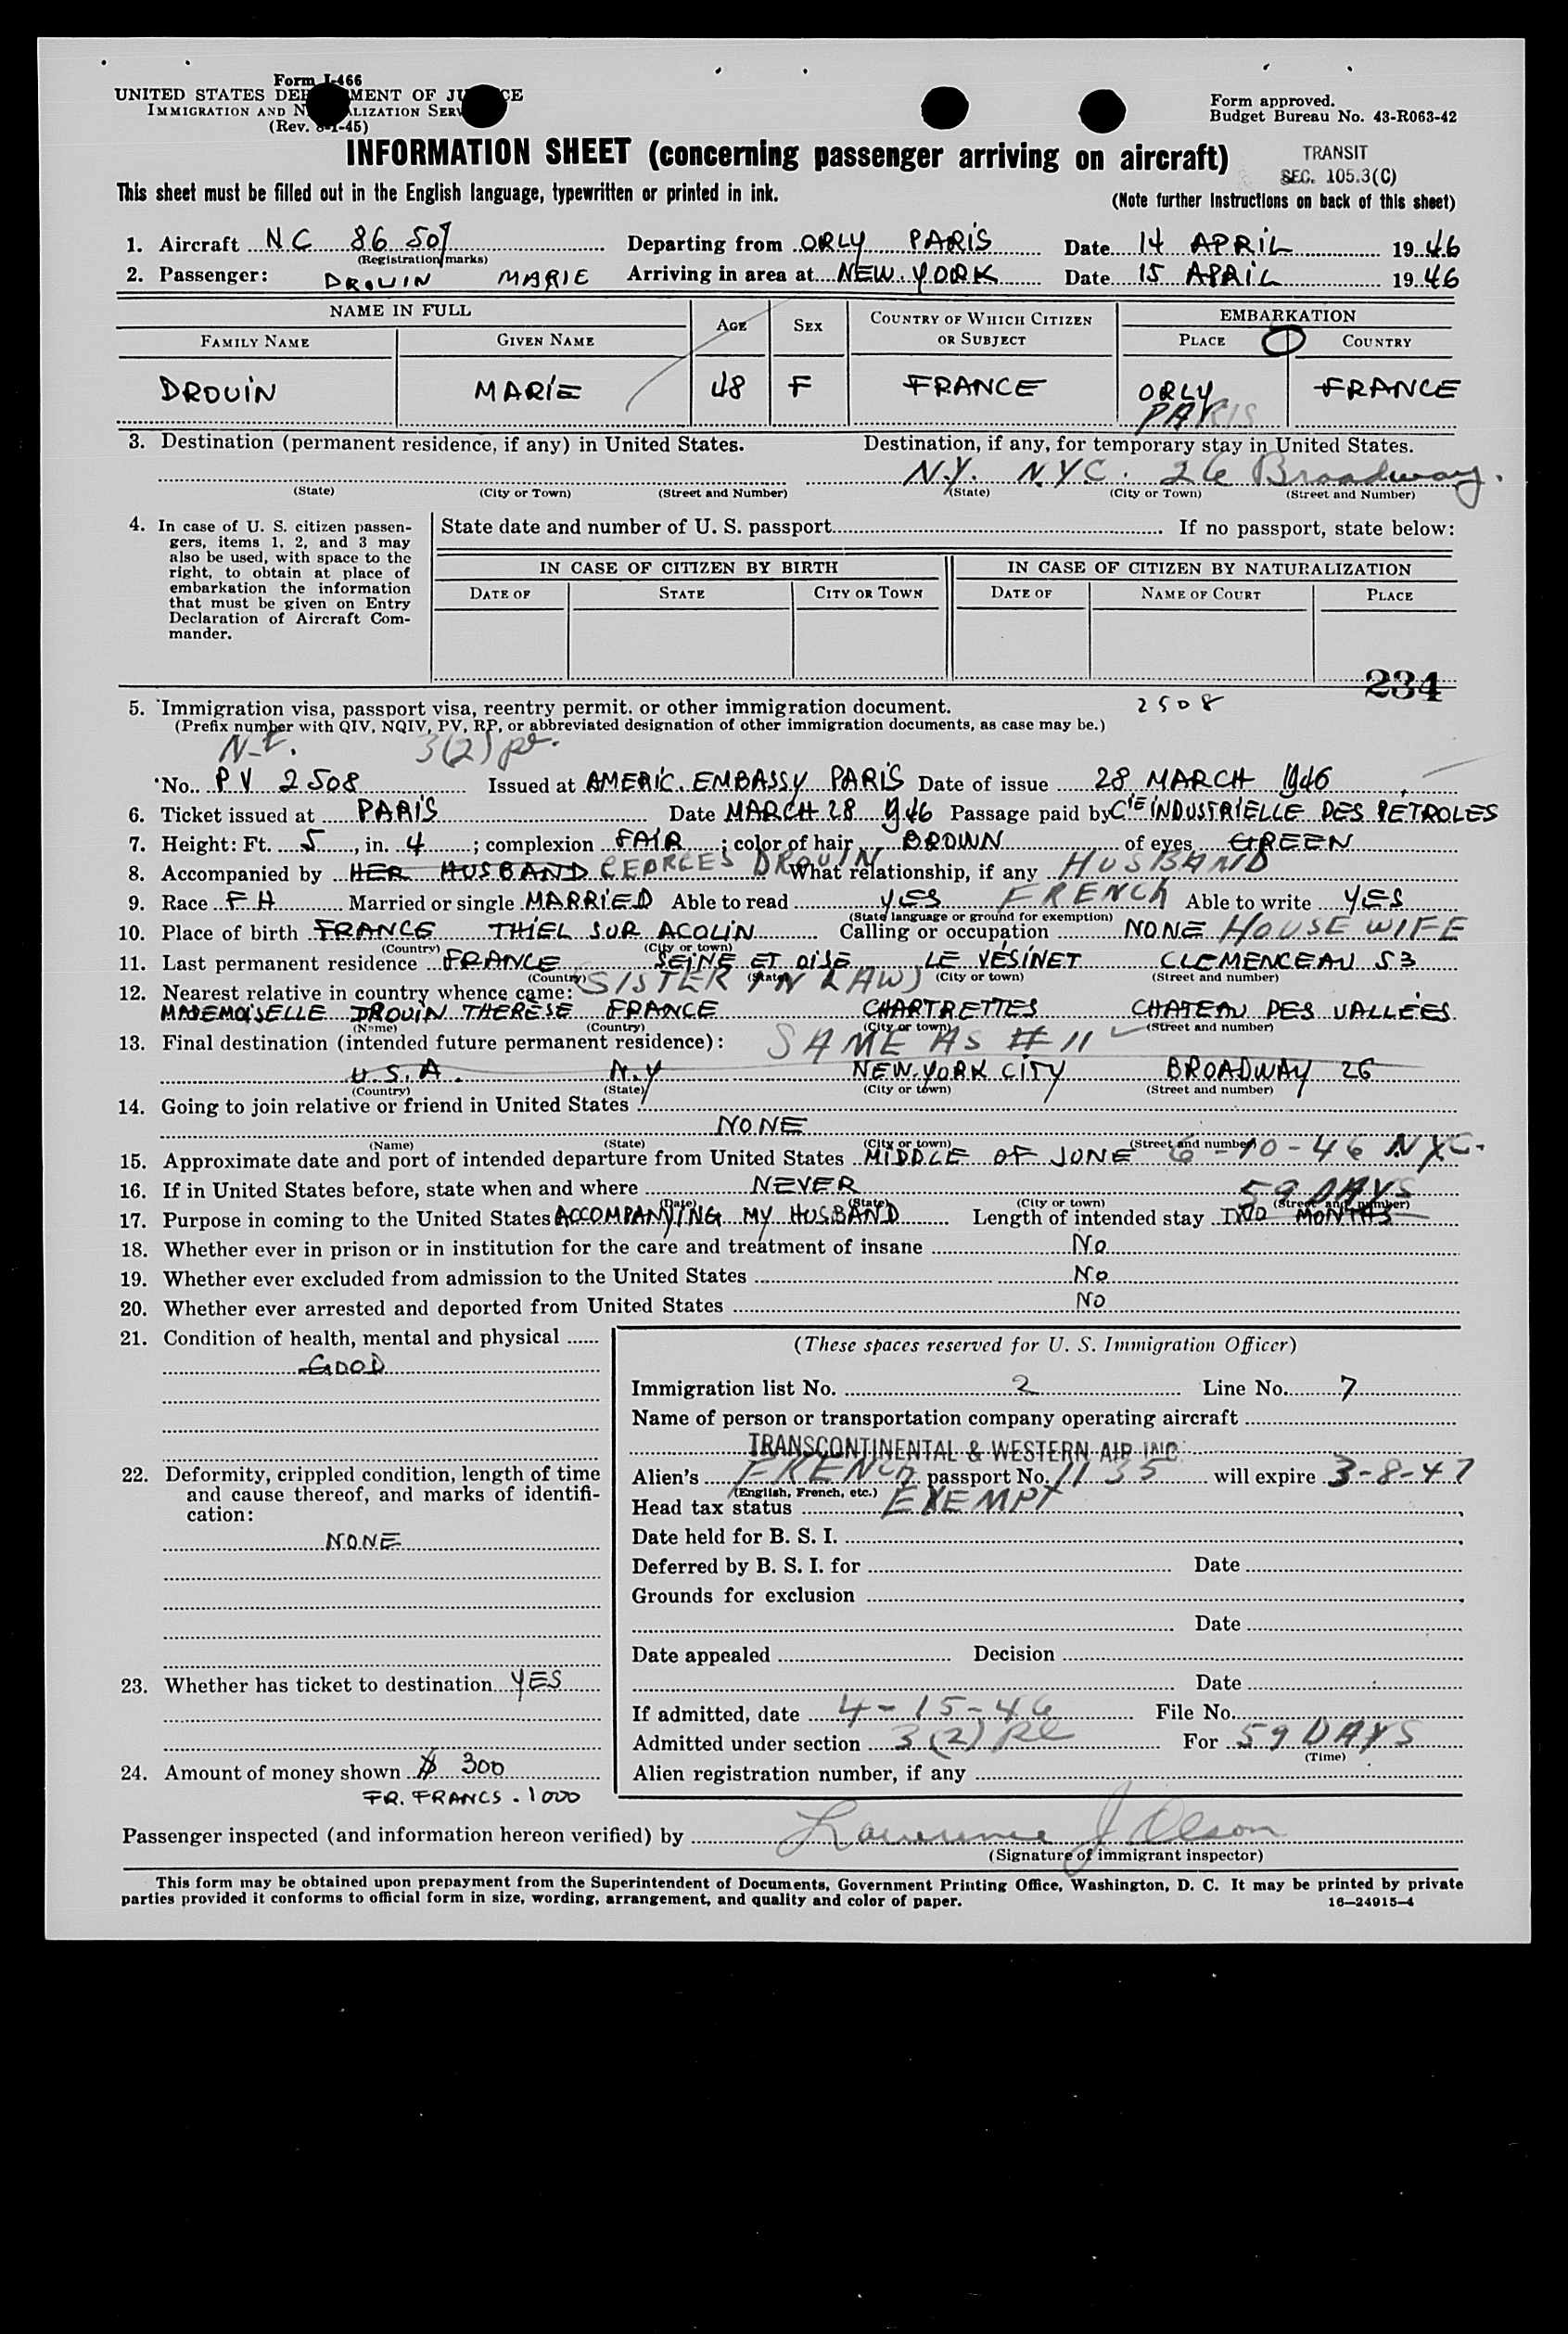 Form I-466
UNITED STATES DEPARTMENT OF JUSTICE
IMMIGRATION AND NATURALIZATION SERVICE
(Rev. 8-1-45)
Form approved.
Budget Bureau No. 43-R063-42
INFORMATION SHEET (concerning passenger arriving on aircraft)
TRANSIT
SEC. 105.3(C)
This sheet must be filled out in the English language, typewritten or printed in ink.
(Note further instructions on back of this sheet)
1. Aircraft NC 86 507 Departing from ORLY PARIS Date 14 APRIL 1946
(Registration marks)
2. Passenger: DROUIN MARIE Arriving in area at NEW YORK Date 15 APRIL 1946
NAME IN FULL AGE SEX COUNTRY OF WHICH CITIZEN OR SUBJECT EMBARKATION
FAMILY NAME GIVEN NAME PLACE COUNTRY
DROUIN MARIE 48 F FRANCE ORLY PARIS FRANCE
3. Destination (permanent residence, if any) in United States. Destination, if any, for temporary stay in United States.
N.Y. N.Y.C. 26 Broadway.
(State) (City or Town) (Street and Number) (State) (City or Town) (Street and Number)
4. In case of U. S. citizen passengers, items 1, 2, and 3 may also be used, with space to the right, to obtain at place of embarkation the information that must be given on Entry Declaration of Aircraft Commander.
State date and number of U. S. passport If no passport, state below:
IN CASE OF CITIZEN BY BIRTH IN CASE OF CITIZEN BY NATURALIZATION
DATE OF STATE CITY OR TOWN DATE OF NAME OF COURT PLACE
234
5. Immigration visa, passport visa, reentry permit, or other immigration document. 2508
(Prefix number with QIV, NQIV, PV, RP, or abbreviated designation of other immigration documents, as case may be.)
3(2)
No. PV 2508 Issued at AMERIC. EMBASSY PARIS Date of issue 28 MARCH 1946
6. Ticket issued at PARIS Date MARCH 28 1946 Passage paid by CIE INDUSTRIELLE DES PETROLES
7. Height: Ft. 5, in. 4; complexion FAIR; color of hair BROWN of eyes GREEN
8. Accompanied by HER HUSBAND GEORGES DROUIN What relationship, if any HUSBAND
9. Race FH Married or single MARRIED Able to read YES FRENCH Able to write YES
(State language or ground for exemption)
10. Place of birth FRANCE THIEL SUR ACOLIN Calling or occupation NONE HOUSE WIFE
(Country) (City or town)
11. Last permanent residence FRANCE SEINE ET OISE LE VÉSINET CLEMENCEAU 53
(Country) (State) (City or town) (Street and number)
12. Nearest relative in country whence came: (SISTER IN LAW)
MADEMOISELLE DROUIN THERÈSE FRANCE CHARTRETTES CHATEAU DES VALLÉES
(Name) (Country) (City or town) (Street and number)
13. Final destination (intended future permanent residence): SAME AS #11
U.S.A. N.Y NEW.YORK CITY BROADWAY 26
(Country) (State) (City or town) (Street and number)
14. Going to join relative or friend in United States
NONE
(Name) (State) (City or town) (Street and number)
15. Approximate date and port of intended departure from United States MIDDLE OF JUNE 6-10-46 NYC.
16. If in United States before, state when and where NEVER
(Date) (State) (City or town) (Street and number)
59 DAYS
17. Purpose in coming to the United States ACCOMPANYING MY HUSBAND Length of intended stay TWO MONTHS
18. Whether ever in prison or in institution for the care and treatment of insane No
19. Whether ever excluded from admission to the United States No
20. Whether ever arrested and deported from United States NO
21. Condition of health, mental and physical
GOOD
22. Deformity, crippled condition, length of time and cause thereof, and marks of identification:
NONE
23. Whether has ticket to destination YES
24. Amount of money shown $ 300
FR. FRANCS. 1000
(These spaces reserved for U. S. Immigration Officer)
Immigration list No. 2 Line No. 7
Name of person or transportation company operating aircraft
TRANSCONTINENTAL & WESTERN AIR INC
Alien's FRENCH passport No. 1135 will expire 3-8-47
(English, French, etc.)
Head tax status EXEMPT
Date held for B. S. I.
Deferred by B. S. I. for Date
Grounds for exclusion
Date
Date appealed Decision
Date
If admitted, date 4-15-46 File No.
Admitted under section 3(2) For 59 DAYS
(Time)
Alien registration number, if any
Passenger inspected (and information hereon verified) by Lawrence J Olson
(Signature of immigrant inspector)
This form may be obtained upon prepayment from the Superintendent of Documents, Government Printing Office, Washington, D. C. It may be printed by private
parties provided it conforms to official form in size, wording, arrangement, and quality and color of paper.
16—24915-4